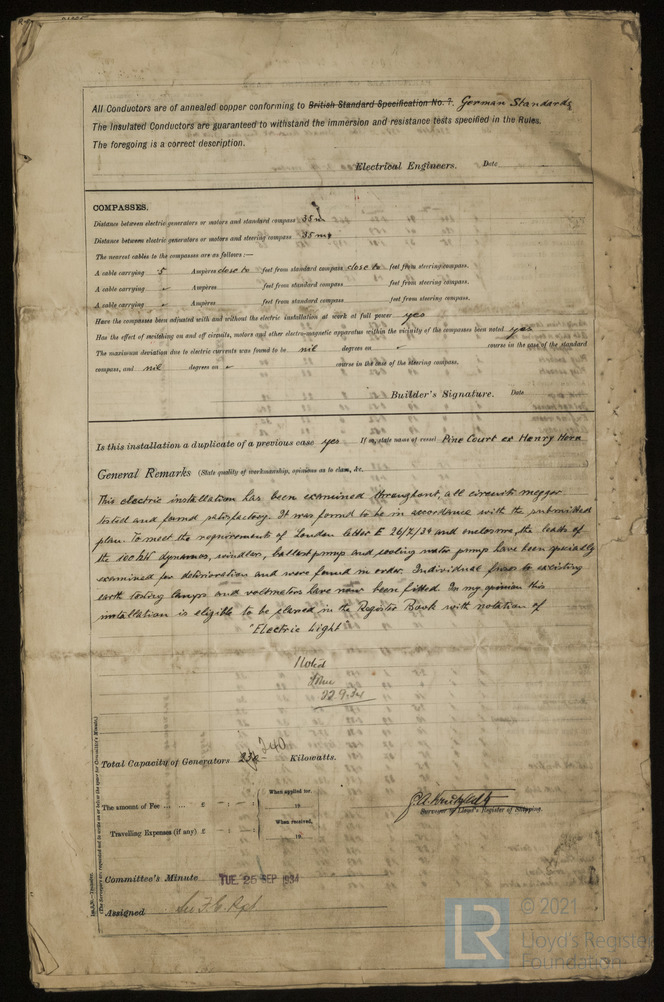 All Conductors are of annealed copper conforming to British Standard Specification No. 7. German Standards
The Insulated Conductors are guaranteed to withstand the immersion and resistance tests specified in the Rules.
The foregoing is a correct description.
Electrical Engineers. Date
COMPASSES.
Distance between electric generators or motors and standard compass 35
Distance between electric generators or motors and steering compass 35
The nearest cables to the compasses are as follows:—
A cable carrying 5 Ampères close to feet from standard compass close to feet from steering compass.
A cable carrying Ampères feet from standard compass feet from steering compass.
A cable carrying Ampères feet from standard compass feet from steering compass.
Have the compasses been adjusted with and without the electric installation at work at full power yes
Has the effect of switching on and off circuits, motors and other electro-magnetic apparatus within the vicinity of the compasses been noted yes
The maximum deviation due to electric currents was found to be nil degrees on course in the case of the standard
compass, and nil degrees on course in the case of the steering compass.
Builder's Signature. Date
Is this installation a duplicate of a previous case yes If so, state name of vessel Pine Court ex Henry Horn
General Remarks (State quality of workmanship, opinions as to class, &c.
This electric installation has been examined throughout, all circuits megger
tested and found satisfactory. It was found to be in accordance with the submitted
plan. To meet the requirements of London letter E 26/7/34 and enclosure, the leads of
the dynamos, windlass, ballast pumps and cooling water pump have been specially
examined for deterioration and were found in order. Individual fuses to existing
earth testing lamps and voltmeters have now been fitted. In my opinion this
installation is eligible to be classed in the Register Book with notation of
"Electric Light"
Noted
22.9.34
240
Total Capacity of Generators Kilowatts.
The amount of Fee ... ... £ - : - : -
When applied for,
19
Travelling Expenses (if any) £ - : - : -
When received,
19
Surveyor of Lloyd's Register of Shipping.
Committee's Minute TUE. 25 SEP 1934
Assigned
(The Surveyors are requested not to write on or below the space for Committee's Minute.)
LR
© 2021
Lloyd's Register
Foundation